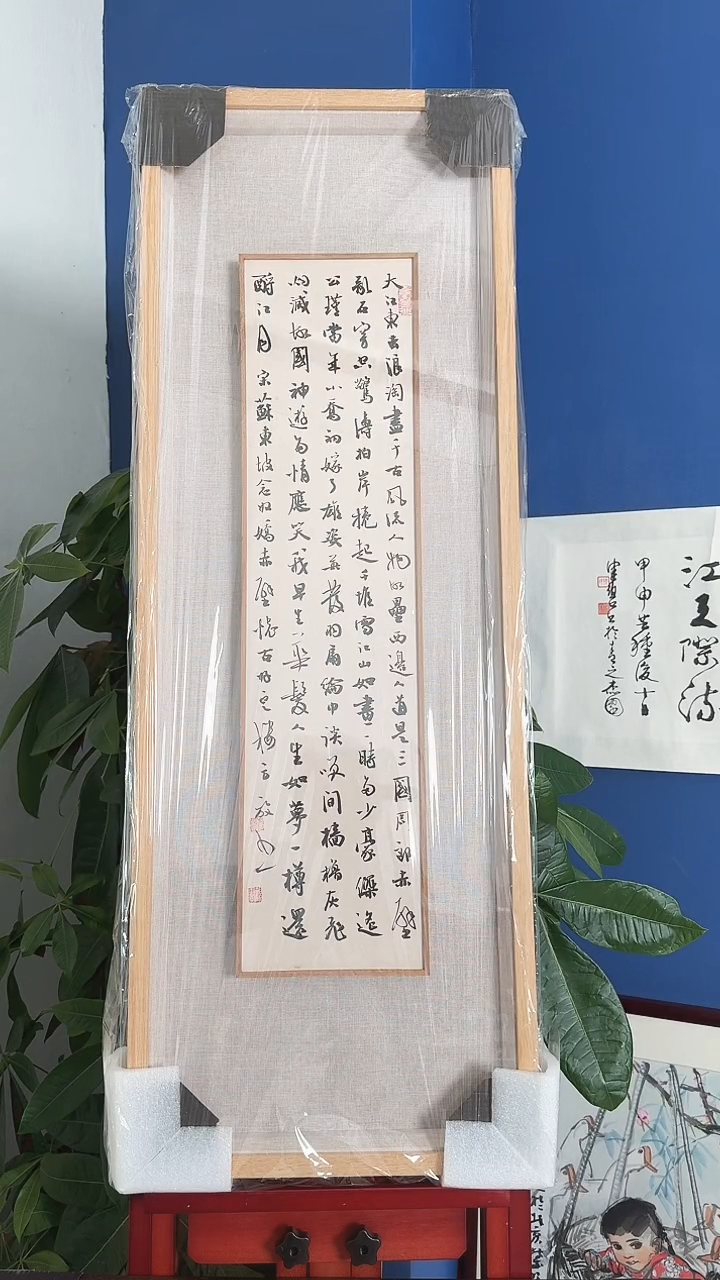 大江東去浪淘盡千古風流人物故壘西邊人道是三國周郎赤壁
亂石穿空驚濤拍岸捲起千堆雪江山如畫一時多少豪傑遙
公瑾當年小喬初嫁了雄姿英發羽扇綸巾談笑間檣櫓灰飛
烟滅故國神遊多情應笑我早生華髮人生如夢一樽還
酹江月 宋蘇東坡念奴嬌赤壁懷古
江天際流
甲申芒種後十日